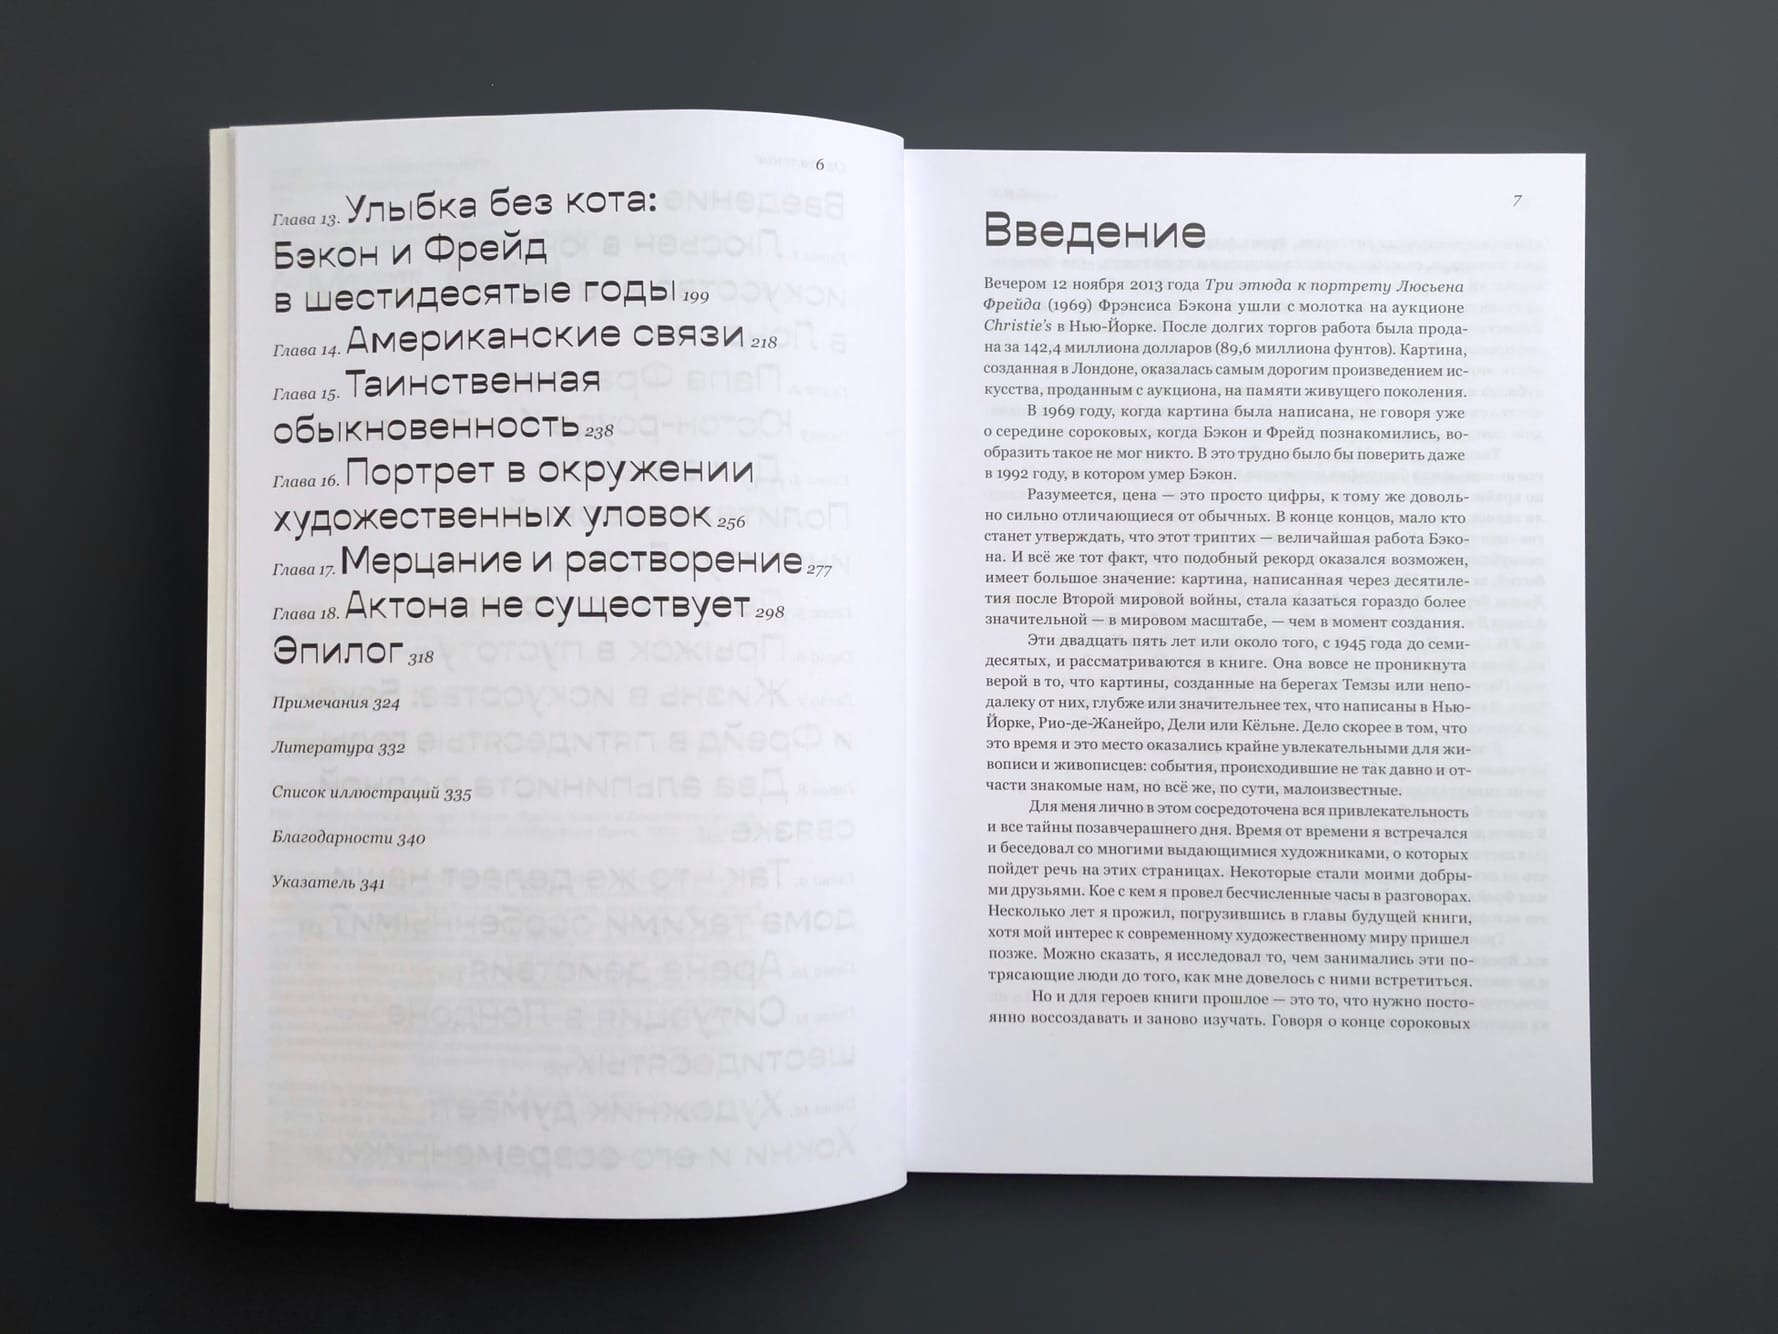 6
Глава 13. Улыбка без кота:
Бэкон и Фрейд
в шестидесятые годы 199
Глава 14. Американские связи 218
Глава 15. Таинственная
обыкновенность 238
Глава 16. Портрет в окружении
художественных уловок 256
Глава 17. Мерцание и растворение 277
Глава 18. Актона не существует 298
Эпилог 318
Примечания 324
Литература 332
Список иллюстраций 335
Благодарности 340
Указатель 341
7
Введение
Вечером 12 ноября 2013 года Три этюда к портрету Люсьена
Фрейда (1969) Фрэнсиса Бэкона ушли с молотка на аукционе
Christie's в Нью-Йорке. После долгих торгов работа была прода-
на за 142,4 миллиона долларов (89,6 миллиона фунтов). Картина,
созданная в Лондоне, оказалась самым дорогим произведением ис-
кусства, проданным с аукциона, на памяти живущего поколения.
В 1969 году, когда картина была написана, не говоря уже
о середине сороковых, когда Бэкон и Фрейд познакомились, во-
образить такое не мог никто. В это трудно было бы поверить даже
в 1992 году, в котором умер Бэкон.
Разумеется, цена — это просто цифры, к тому же доволь-
но сильно отличающиеся от обычных. В конце концов, мало кто
станет утверждать, что этот триптих — величайшая работа Бэко-
на. И всё же тот факт, что подобный рекорд оказался возможен,
имеет большое значение: картина, написанная через десятиле-
тия после Второй мировой войны, стала казаться гораздо более
значительной — в мировом масштабе, — чем в момент создания.
Эти двадцать пять лет или около того, с 1945 года до семи-
десятых, и рассматриваются в книге. Она вовсе не проникнута
верой в то, что картины, созданные на берегах Темзы или непо-
далеку от них, глубже или значительнее тех, что написаны в Нью-
Йорке, Рио-де-Жанейро, Дели или Кёльне. Дело скорее в том, что
это время и это место оказались крайне увлекательными для жи-
вописи и живописцев: события, происходившие не так давно и от-
части знакомые нам, но всё же, по сути, малоизвестные.
Для меня лично в этом сосредоточена вся привлекательность
и все тайны позавчерашнего дня. Время от времени я встречался
и беседовал со многими выдающимися художниками, о которых
пойдет речь на этих страницах. Некоторые стали моими добры-
ми друзьями. Кое с кем я провел бесчисленные часы в разговорах.
Несколько лет я прожил, погрузившись в главы будущей книги,
хотя мой интерес к современному художественному миру пришел
позже. Можно сказать, я исследовал то, чем занимались эти по-
трясающие люди до того, как мне довелось с ними встретиться.
Но и для героев книги прошлое — это то, что нужно посто-
янно воссоздавать и заново изучать. Говоря о конце сороковых